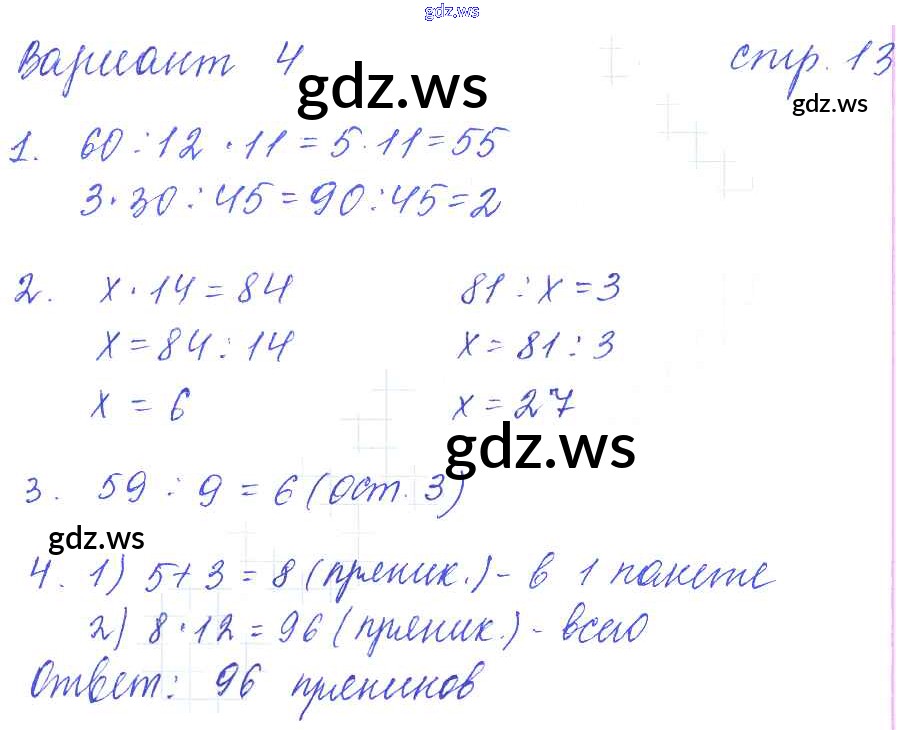 gdz.ws
Вариант 4 стр. 13
gdz.ws
gdz.ws
1. 60 : 12 · 11 = 5 · 11 = 55
3 · 30 : 45 = 90 : 45 = 2
2. x · 14 = 84 81 : x = 3
x = 84 : 14 x = 81 : 3
x = 6 x = 27
gdz.ws
3. 59 : 9 = 6 (ост. 3)
gdz.ws
4. 1) 5 + 3 = 8 (пряник.) - в 1 пакете
2) 8 · 12 = 96 (пряник.) - всего
Ответ: 96 пряников